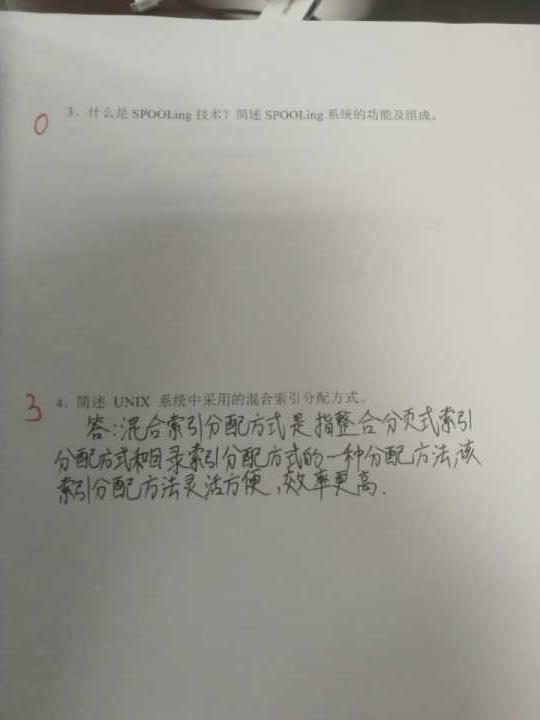 0
3. 什么是 SPOOLing 技术？简述 SPOOLing 系统的功能及组成。
3
4. 简述 UNIX 系统中采用的混合索引分配方式。
答:混合索引分配方式是指整合分页式索引
分配方式和目录索引分配方式的一种分配方法,该
索引分配方法灵活方便,效率更高.